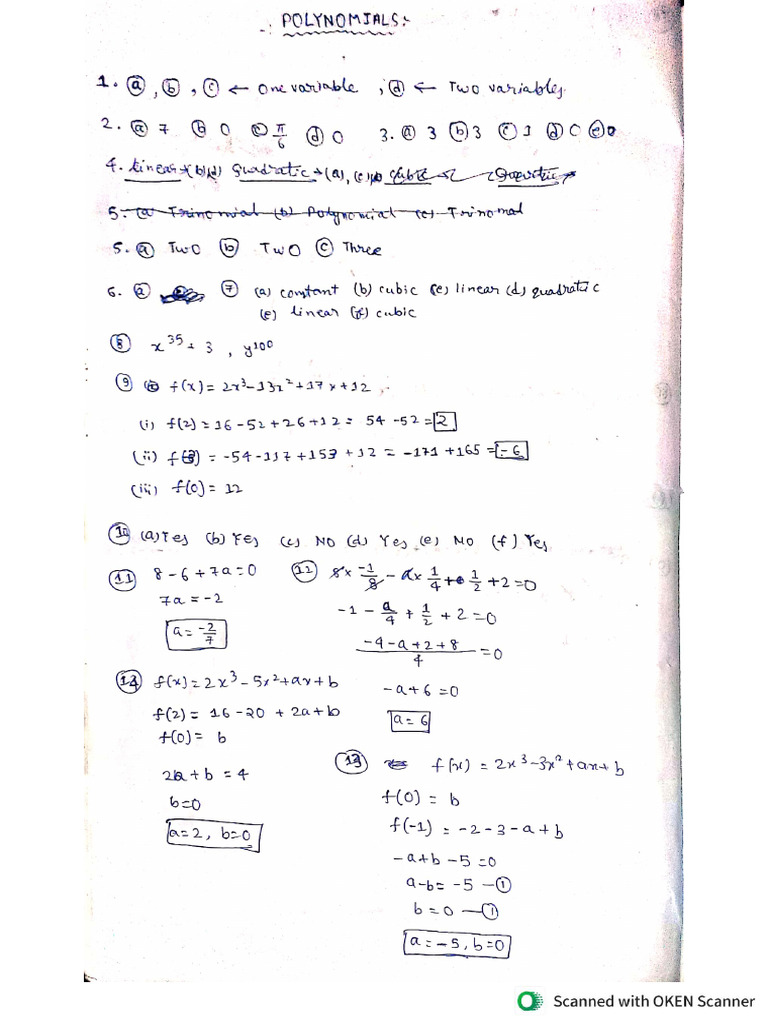 POLYNOMIALS:-
1. (a), (b), (c) ← One variable , (d) ← Two variables.
2. (a) 7 (b) 0 (c) π/6 (d) 0 3. (a) 3 (b) 3 (c) 1 (d) 0 (e) 0
4. Linear → (b), (d) Quadratic → (a), (c) Cubic
5. (a) Trinomial (b) Polynomial (c) Trinomal
5. (a) Two (b) Two (c) Three
6. (a) (7) (a) constant (b) cubic (c) linear (d) quadratic
(e) linear (f) cubic
(8) x³⁵ + 3 , y¹⁰⁰
(9) f(x) = 2x³ - 13x² + 17x + 12
(i) f(2) = 16 - 52 + 26 + 12 = 54 - 52 = 2
(ii) f(-3) = -54 - 117 + 153 + 12 = -171 + 165 = -6
(iii) f(0) = 12
(10) (a) Yes (b) Yes (c) NO (d) Yes (e) NO (f) Yes
(11) 8 - 6 + 7a = 0
7a = -2
a = -2/7
(12) 8 × -1/8 - a × 1/4 + 1/2 + 2 = 0
-1 - a/4 + 1/2 + 2 = 0
-4 - a + 2 + 8 / 4 = 0
-a + 6 = 0
a = 6
(14) f(x) = 2x³ - 5x² + ax + b
f(2) = 16 - 20 + 2a + b
f(0) = b
2a + b = 4
b = 0
a = 2, b = 0
(13) f(x) = 2x³ - 3x² + ax + b
f(0) = b
f(-1) = -2 - 3 - a + b
-a + b - 5 = 0
a - b = -5 — (1)
b = 0 — (1)
a = -5, b = 0
Scanned with OKEN Scanner